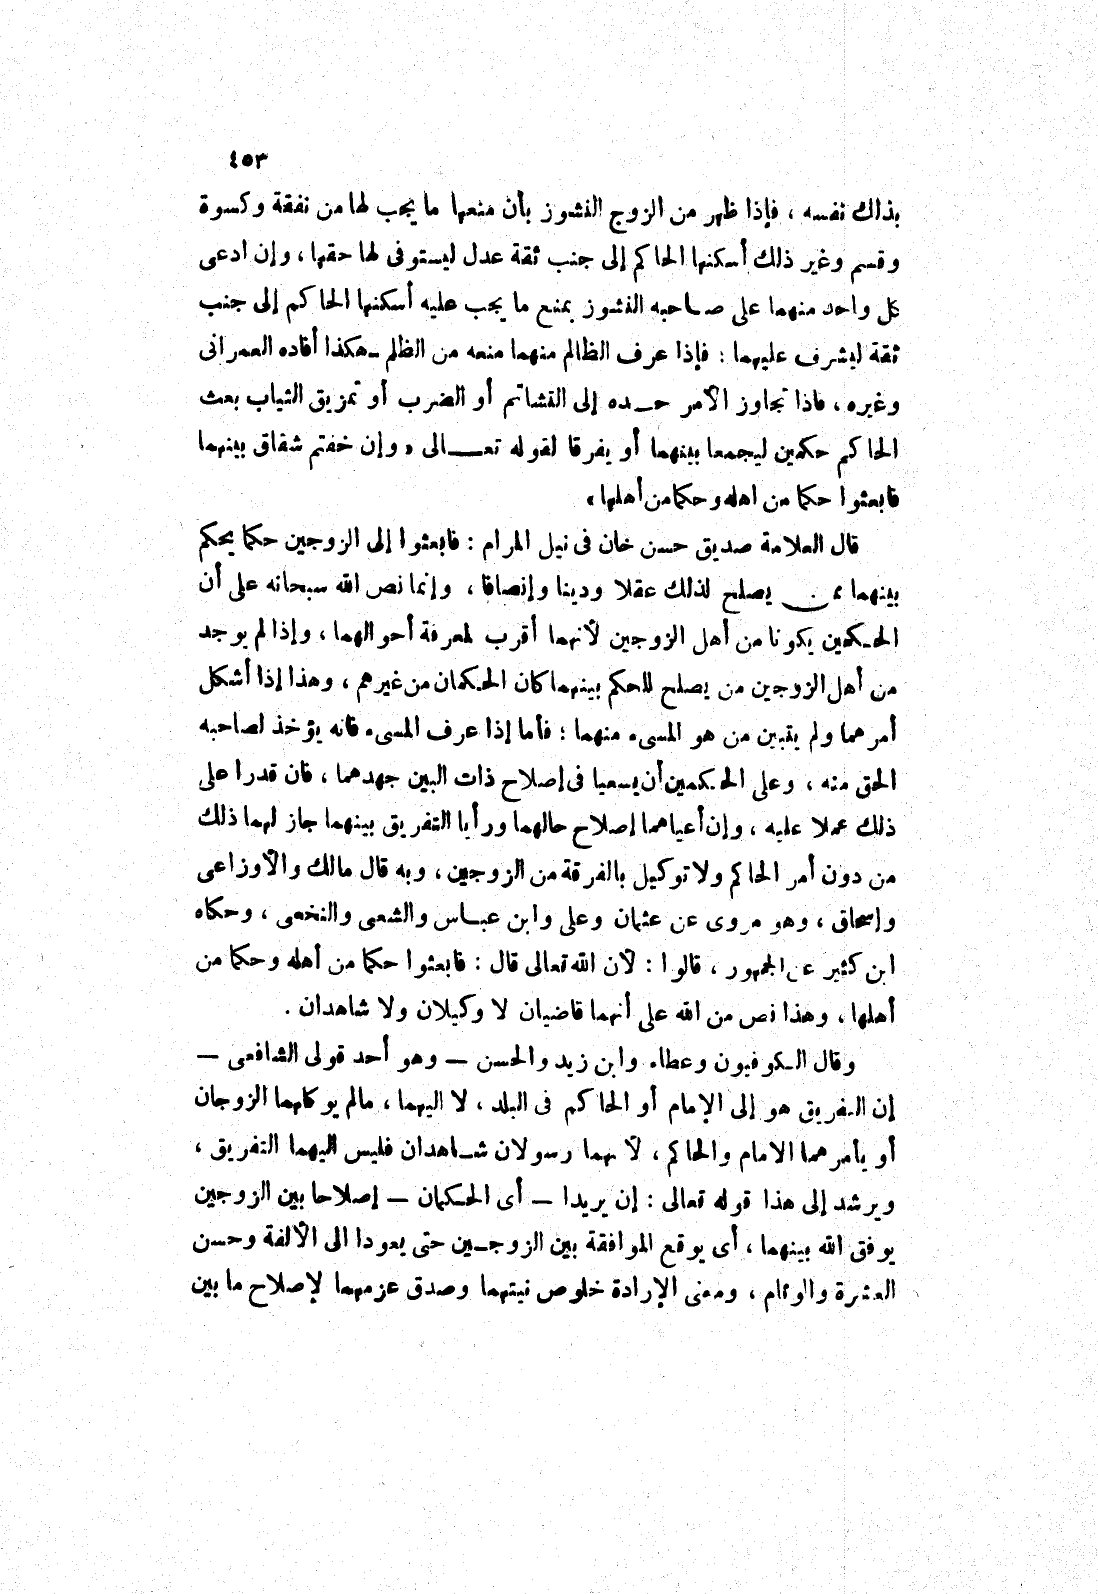 ٤٥٣
بذلك نفسه ، فإذا ظهر من الزوج النشوز بأن منعها ما يجب لها من نفقة وكسوة
وقسم وغير ذلك أسكنها الحاكم إلى جنب ثقة عدل ليستوفى لها حقها ، وإن ادعى
كل واحد منهما على صاحبه النشوز بمنع ما يجب عليه أسكنها الحاكم إلى جنب
ثقة ليشرف عليهما : فإذا عرف الظالم منهما منعه من الظلم ـ هكذا أفاده العمرانى
وغيره ، فاذا تجاوز الأمر حـده إلى التشاتم أو الضرب أو تمزيق الثياب بعث
الحاكم حكمين ليجمعا بينهما أو يفرقا لقوله تعـــالى « وإن خفتم شقاق بينهما
فابعثوا حكما من اهله وحكما من أهلها »
قال العلامة صديق حسن خان فى نيل المرام : فابعثوا إلى الزوجين حكما يحكم
بينهما ممن يصلح لذلك عقلا ودينا وإنصافا ، وإنما نص الله سبحانه على أن
الحكمين يكونا من أهل الزوجين لأنهما أقرب لمعرفة أحوالهما ، وإذا لم يوجد
من أهل الزوجين من يصلح للحكم بينهما كان الحكمان من غيرهم ، وهذا إذا أشكل
أمرهما ولم يتبين من هو المسىء منهما ؛ فأما إذا عرف المسىء فانه يؤخذ لصاحبه
الحق منه ، وعلى الحكمين أن يسعيا فى إصلاح ذات البين جهدهما ، فان قدرا على
ذلك عملا عليه ، وإن أعياهما إصلاح حالهما ورأيا التفريق بينهما جاز لهما ذلك
من دون أمر الحاكم ولا توكيل بالفرقة من الزوجين ، وبه قال مالك والأوزاعى
وإسحاق ، وهو مروى عن عثمان وعلى وابن عبـاس والشعبى والنخعى ، وحكاه
ابن كثير عن الجمهور ، قالوا : لأن الله تعالى قال : فابعثوا حكما من أهله وحكما من
أهلها ، وهذا نص من الله على أنهما قاضيان لا وكيلان ولا شاهدان .
وقال الكوفيون وعطاء وابن زيد والحسن ــ وهو أحد قولى الشافعى ــ
إن التفريق هو إلى الإمام أو الحاكم فى البلد ، لا اليهما ، مالم يوكلهما الزوجان
أو يأمرهما الامام والحاكم ، لأنهما رسولان شـاهدان فليس اليهما التفريق ،
ويرشد إلى هذا قوله تعالى : إن يريدا ــ أى الحكمان ــ إصلاحا بين الزوجين
يوفق الله بينهما ، أى يوقع الموافقة بين الزوجـين حتى يعودا الى الألفة وحسن
العشرة والوئام ، ومعنى الإرادة خلوص نيتهما وصدق عزمهما لإصلاح ما بين